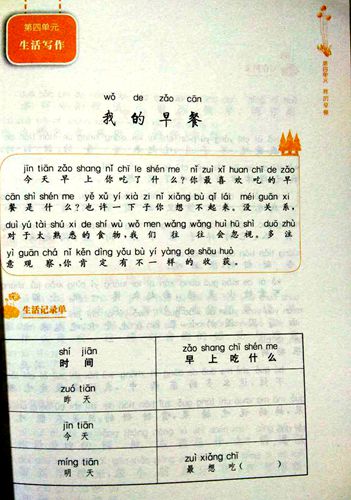 第四单元
生活写作
第四单元 我的早餐
wǒ de zǎo cān
我 的 早 餐
jīn tiān zǎo shang nǐ chī le shén me nǐ zuì xǐ huan chī de zǎo
今 天 早 上 你 吃 了 什 么？你 最 喜 欢 吃 的 早
cān shì shén me yě xǔ yí xià zi nǐ xiǎng bù qǐ lái méi guān xi
餐 是 什 么？也 许 一 下 子 你 想 不 起 来。没 关 系，
duì yú tài shú xi de shí wù wǒ men wǎng wǎng huì hū shì duō zhù
对 于 太 熟 悉 的 食 物，我 们 往 往 会 忽 视。多 注
yì guān chá nǐ kěn dìng yǒu bù yí yàng de shōu huò
意 观 察，你 肯 定 有 不 一 样 的 收 获。
生活记录单
shí jiān zǎo shang chī shén me
时 间 早 上 吃 什 么
zuó tiān
昨 天
jīn tiān
今 天
míng tiān zuì xiǎng chī
明 天 最 想 吃（ ）